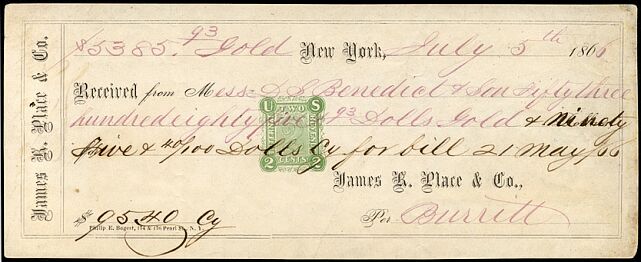 James K. Place & Co.
$5385.93 Gold New York, July 5th 1866
Received from Mess D S Benedict & Son Fifty three
hundred eighty five & 93 Dolls Gold & Ninety
Five & 40/100 Dolls Cy for bill 21 May /66
U S
TWO
2 CENTS 2
James K. Place & Co.,
$ 95.40 Cy Per Burritt
Philip E. Bogert, 174 & 176 Pearl St., N.Y.